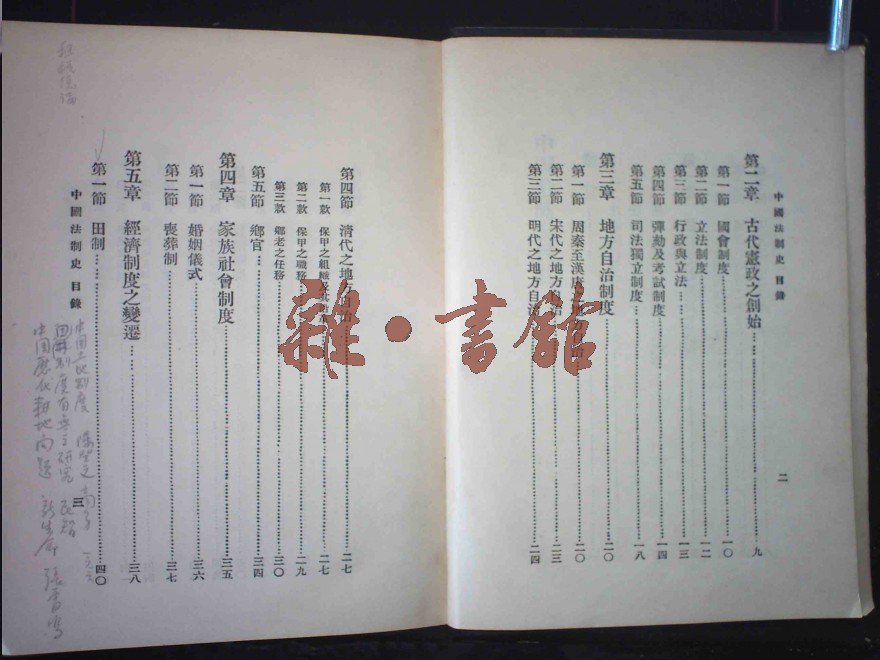 中國法制史 目錄
二
第二章 古代憲政之創始……九
第一節 國會制度……一〇
第二節 立法制度……一二
第三節 行政與立法……一三
第四節 彈劾及考試制度……一四
第五節 司法獨立制度……一八
第三章 地方自治制度……二〇
第一節 周秦至漢唐之地方自治……二〇
第二節 宋代之地方自治……二三
第三節 明代之地方自治……二四
第四節 清代之地方自治……二七
第一款 保甲之組織及其……二七
第二款 保甲之職務……二九
第三款 鄉老之任務……三〇
第五節 鄉官……三四
第四章 家族社會制度……三五
第一節 婚姻儀式……三六
第二節 喪葬制……三七
第五章 經濟制度之變遷……三八
第一節 田制……四〇
中國法制史 目錄
三
中国土地制度
制度有無之研究
中国歷代耕地问题 新生命 張霄鳴
雜·書館